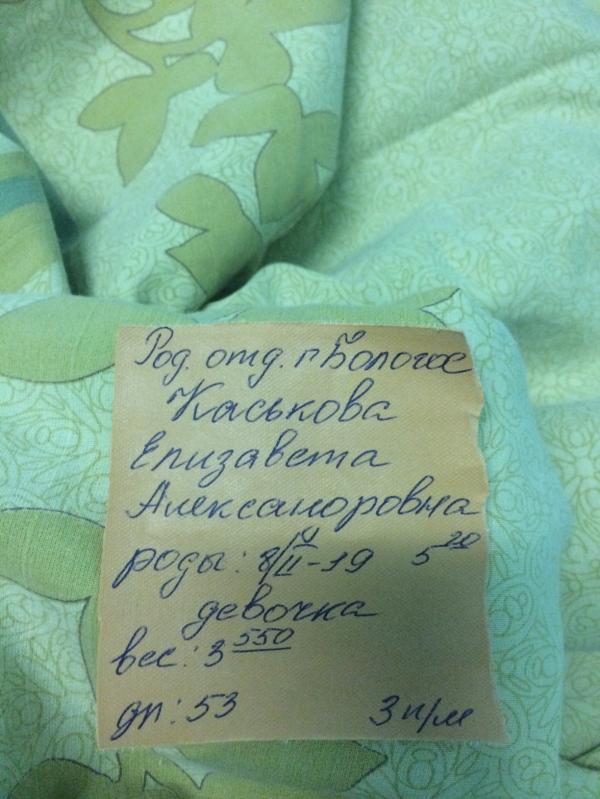 Род. отд. г Бологое
Каськова
Елизавета
Александровна
роды: 8/II-19 5 20
девочка
вес: 3 550
дл: 53 3 п/м